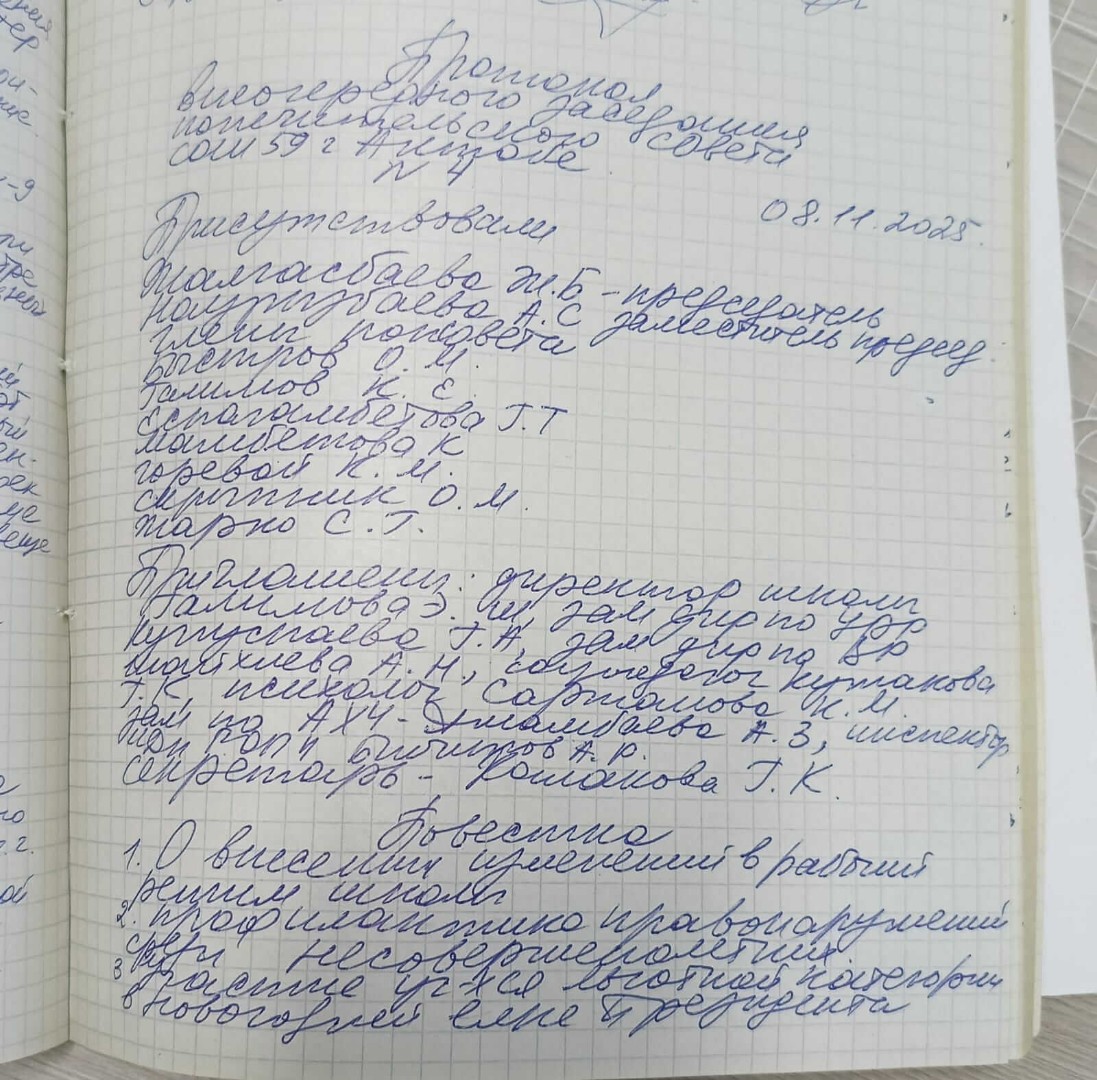 Протокол
внеочередного заседания
попечительского совета
сош 59 г Актобе
N 4
08.11.2025.
Присутствовали
Жалгасбаева Ж.Б - председатель
А.С заместитель председ.
члены попсовета
Быстров О.М.
Галимов К.Е.
Еспагамбетова Г.Т
Мамбетова К
Горевой К.М.
Скрыпник О.М.
Жарко С.Г.
Приглашены: директор школы
Галимова Э.Ш, зам дир по УРР
Г.А, зам дир по ВР
А.Н, соцпедагог Кужакова
Г.К, психолог Сартамова К.М.
зам по АХЧ - А.З, инспектор
А.Р.
секретарь - Романова Г.К.
Повестка
1. О внесении изменений в рабочий
режим школы
2. профилактика правонарушений
среди несовершеннолетних
3 Участие уч-хся льготной категории
в новогодней елке Президента
ной
еще